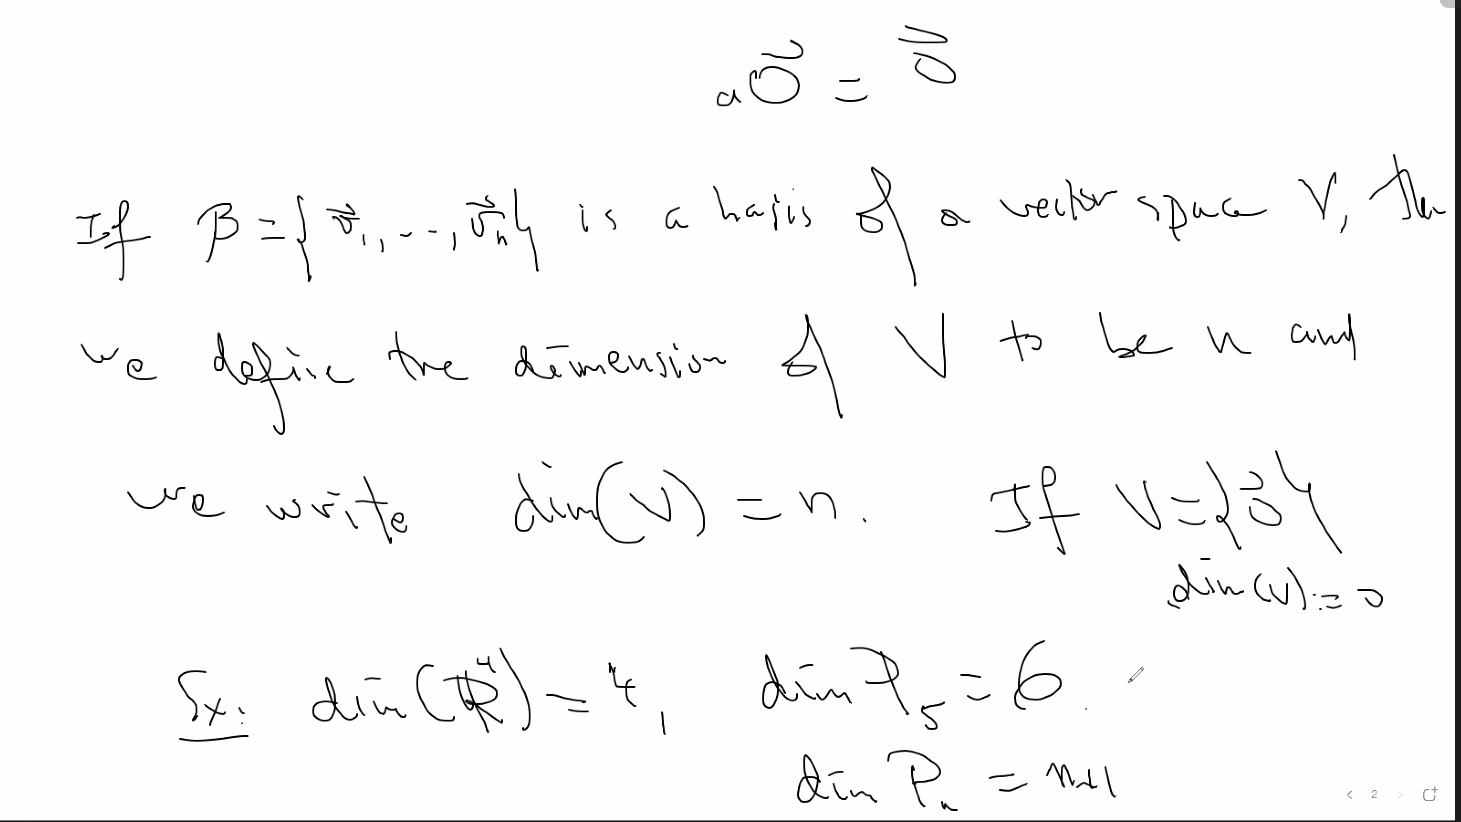 a0⃗ = 0⃗
If β = {v⃗₁, ..., v⃗ₙ} is a basis of a vector space V, then
we define the dimension of V to be n and
we write dim(V) = n. If V = {0⃗}
dim(V) = 0
Ex: dim(ℝ⁴) = 4, dim P₅ = 6.
dim Pₙ = n+1
2